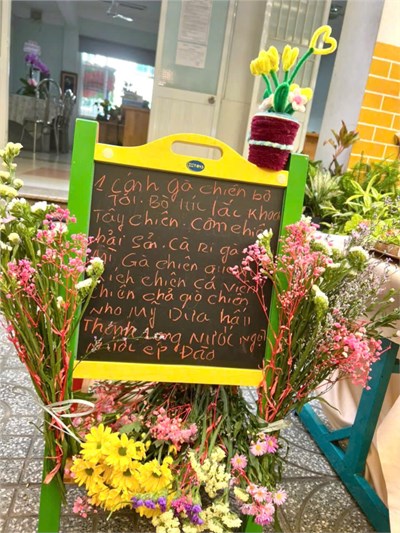 1 cánh gà chiên bơ
Tỏi. Bò lúc lắc khoai
Tây chiên. Cơm chiên
hải sản. Cà Ri gà
mì Gà chiên giòn
xích chiên cá viên
chiên chả giò chiên
Nho Mỹ Dưa hấu
Thanh Long NƯỚC NGỌT
NƯỚC ép Đào